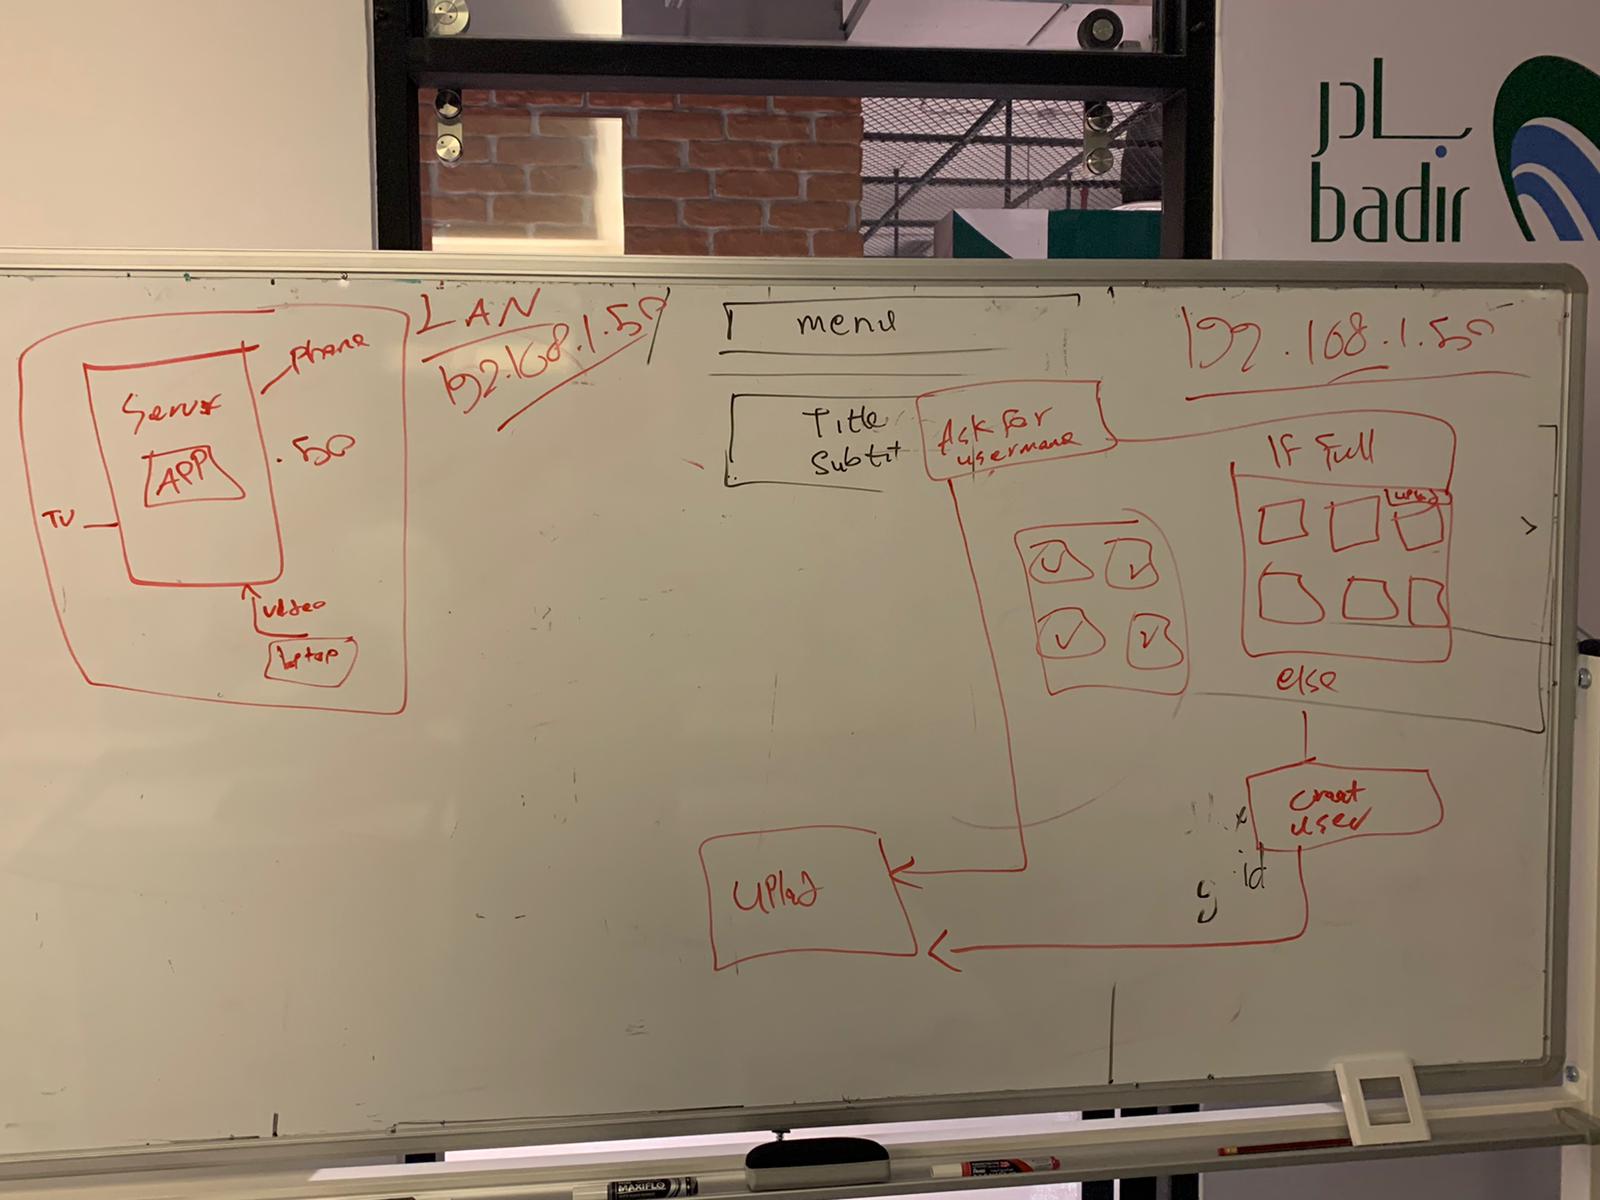 بادر
badir
LAN
192.168.1.50
phone
Server
APP
.50
TV
video
laptop
menu
Title
Subtit
Ask for
username
192.168.1.50
IF Full
upload
else
creat
user
id
g
Upload
MAXIFLO